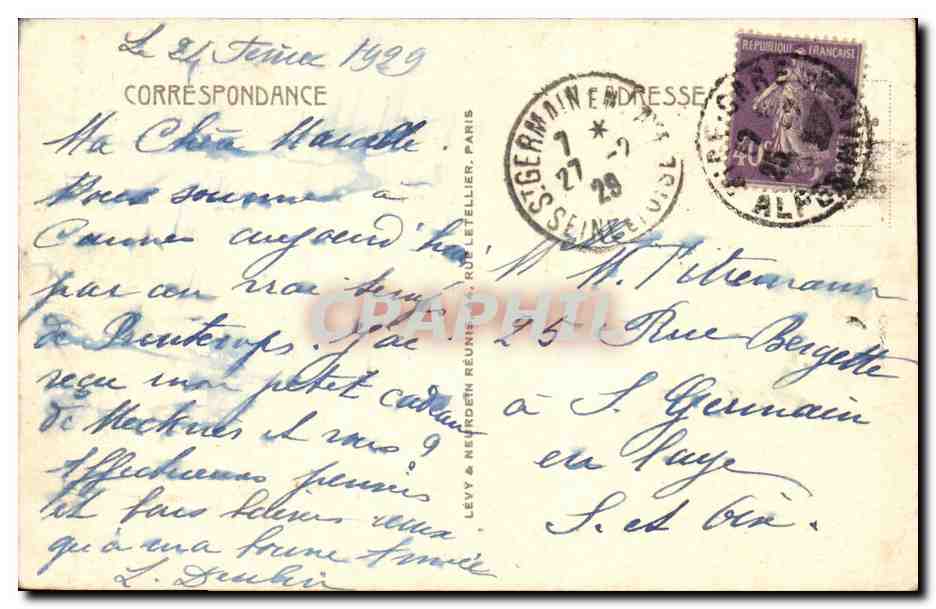 Le 24 Février 1929
CORRESPONDANCE
ADRESSE
Ma Chère Marcelle.
Nous sommes à
Cannes aujourd'hui
par un vrai temps
de Printemps. J'ai
reçu mon petit cadeau
de Mecknès et vous ?
Affectueuses pensées
et bons baisers
qu'à ma bonne Aimée
L.
LÉVY & NEURDEIN RÉUNIS, 44, RUE LETELLIER, PARIS
M Pitremann
25 Rue Bergette
à S. Germain
en Laye
S. et Oise.
ST GERMAIN EN LAYE
7 *
27 - 2
29
SEINE ET OISE
REPUBLIQUE FRANÇAISE
40c
GARE
ALPES MAR
CPAPHIL